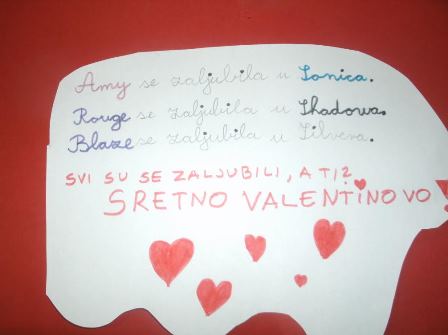 Amy se zaljubila u Sonica.
Rouge se zaljubila u Shadowa.
Blaze se zaljubila u Silvera.
SVI SU SE ZALJUBILI, A TI?
SRETNO VALENTINOVO!